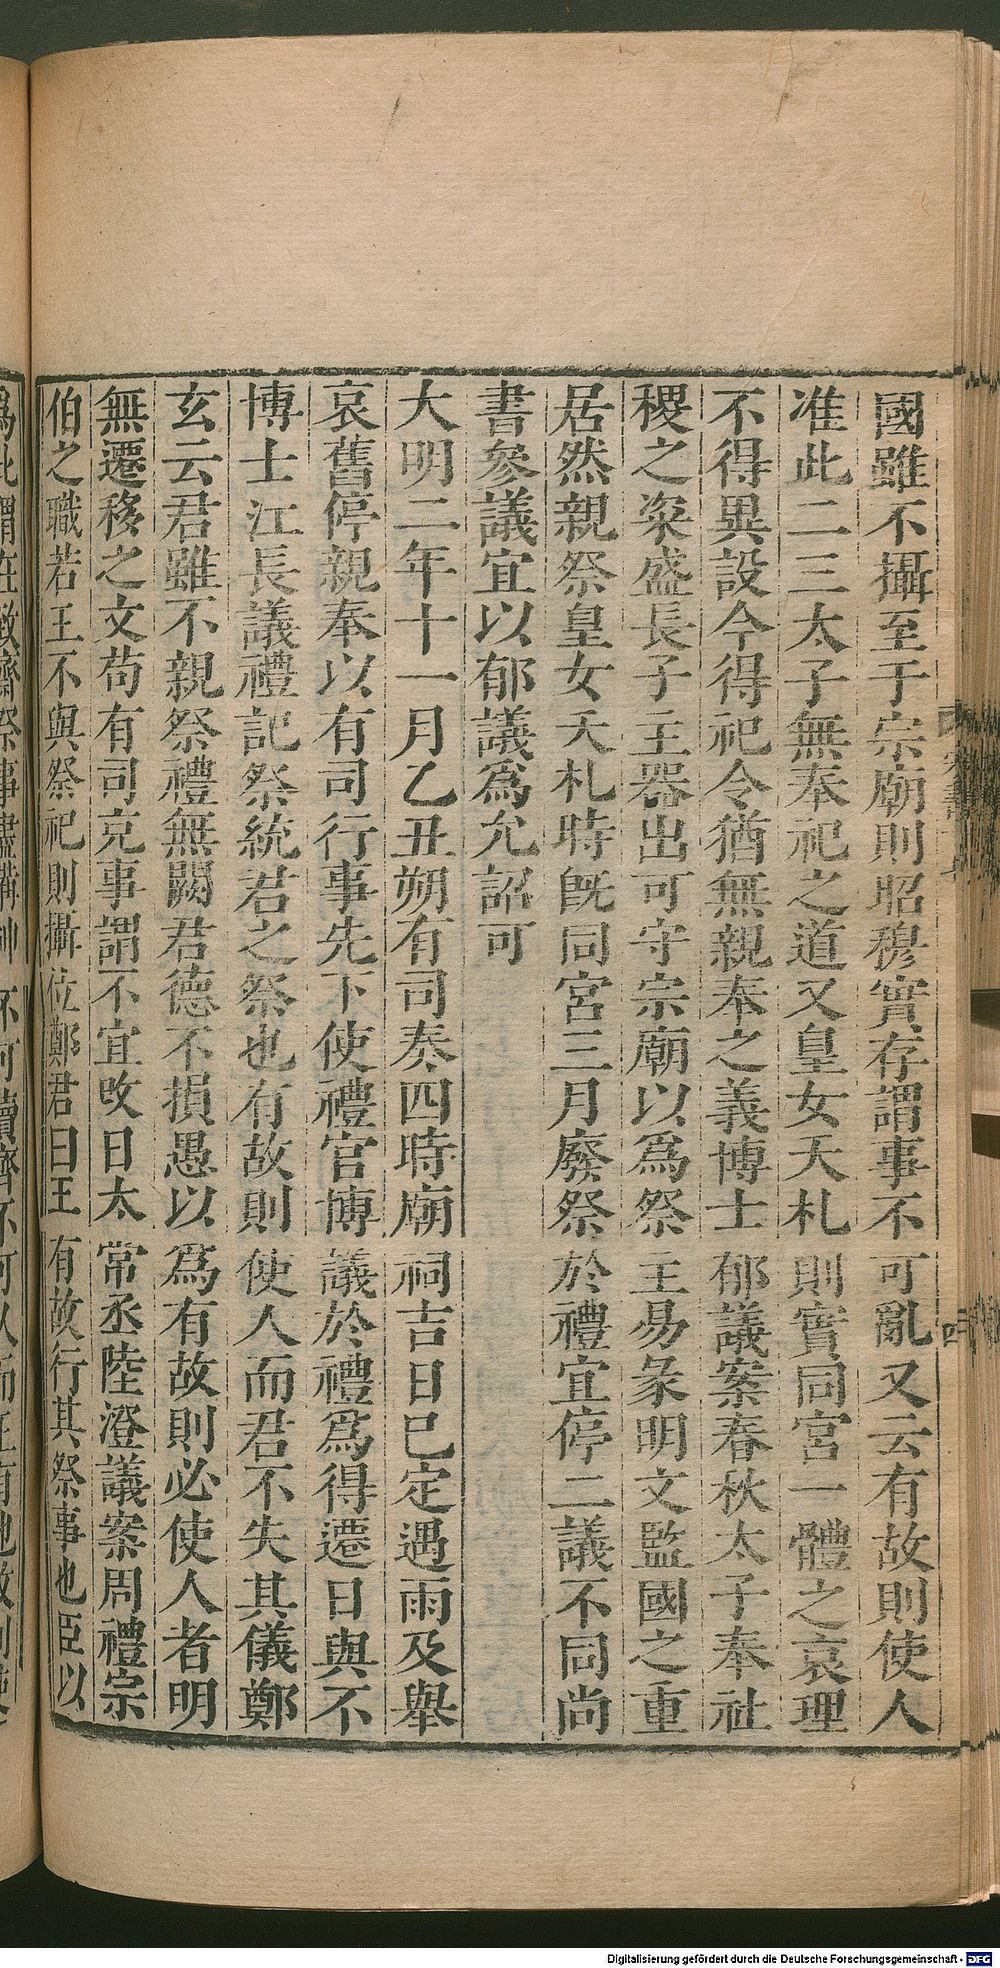 國雖不攝至于宗廟則昭穆實存謂事不可亂又云有故則使人
准此二三太子無奉祀之道又皇女夭札則實同宮一體之哀理
不得異設令得祀令猶無親奉之義博士郁議案春秋太子奉社
稷之粢盛長子主器出可守宗廟以爲祭主易彖明文監國之重
居然親祭皇女夭札時既同宮三月廢祭於禮宜停二議不同尚
書參議宜以郁議爲允詔可
大明二年十一月乙丑朔有司奏四時廟祠吉日已定遇雨及舉
哀舊停親奉以有司行事先下使禮官博議於禮爲得遷日與不
博士江長議禮記祭統君之祭也有故則使人而君不失其儀鄭
玄云君雖不親祭禮無闕君德不損愚以爲有故則必使人者明
無遷移之文苟有司充事謂不宜改日太常丞陸澄議案周禮宗
伯之職若王不與祭祀則攝位鄭君曰王有故行其祭事也臣以
爲此謂在致齋祭事盡備神不可瀆齊不可久而王有他故則使
四
Digitalisierung gefördert durch die Deutsche Forschungsgemeinschaft - DFG